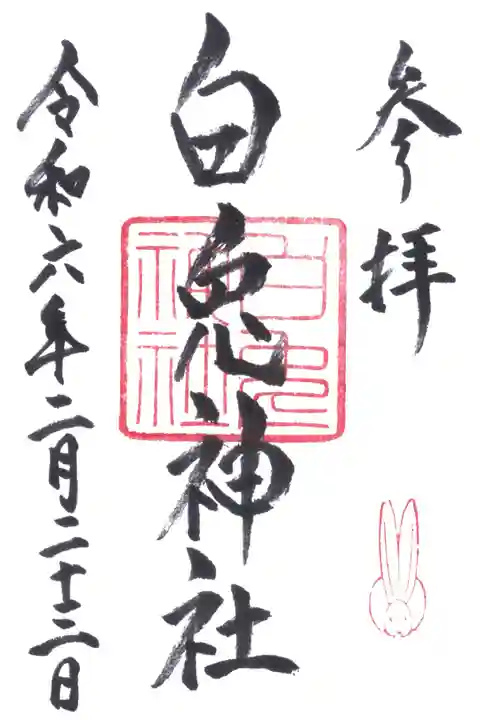 参拝
白兎神社
白兎神社
令和六年二月二十三日